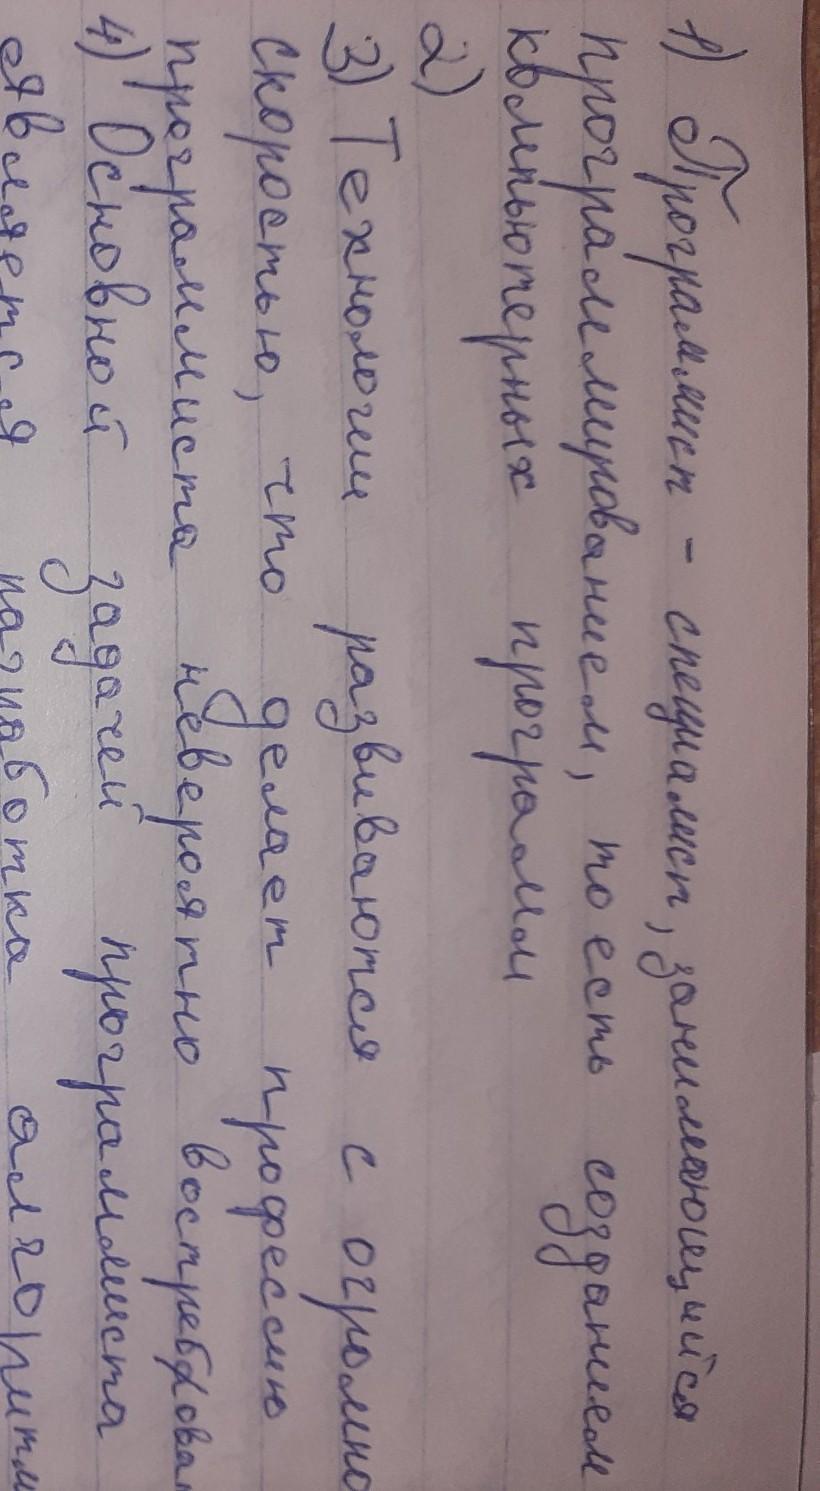 1) Программист - специалист, занимающийся
программированием, то есть созданием
компьютерных программ
2)
3) Технологии развиваются с огромно
скоростью, что делает профессию
программиста невероятно востребова
4) Основной задачей программиста
является разработка алгоритм